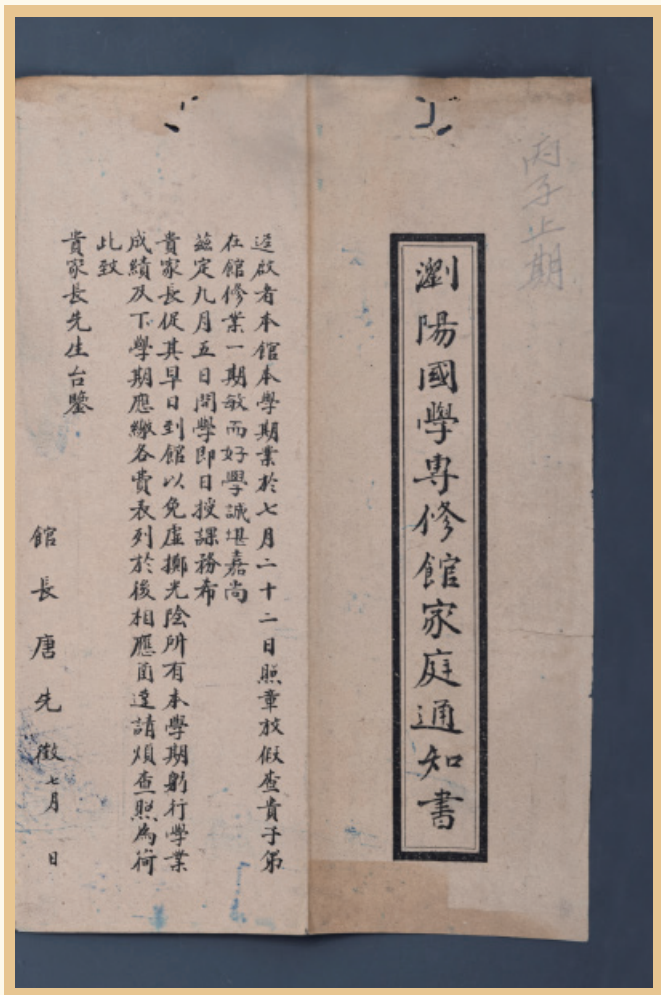 丙子上期
瀏陽國學専修館家庭通知書
逕啟者本館本學期業於七月二十二日照章放假查貴子弟
在館修業一期敏而好學誠堪嘉尚
茲定九月五日開學即日授課務希
貴家長促其早日到館以免虛擲光陰所有本學期躬行學業
成績及下學期應繳各費表列於後相應函達請煩查照為荷
此致
貴家長先生台鑒
館長唐先徵七月 日